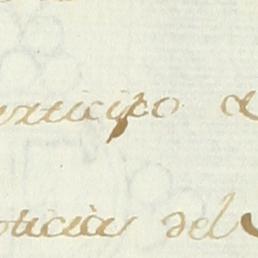 articipo a
oticia del